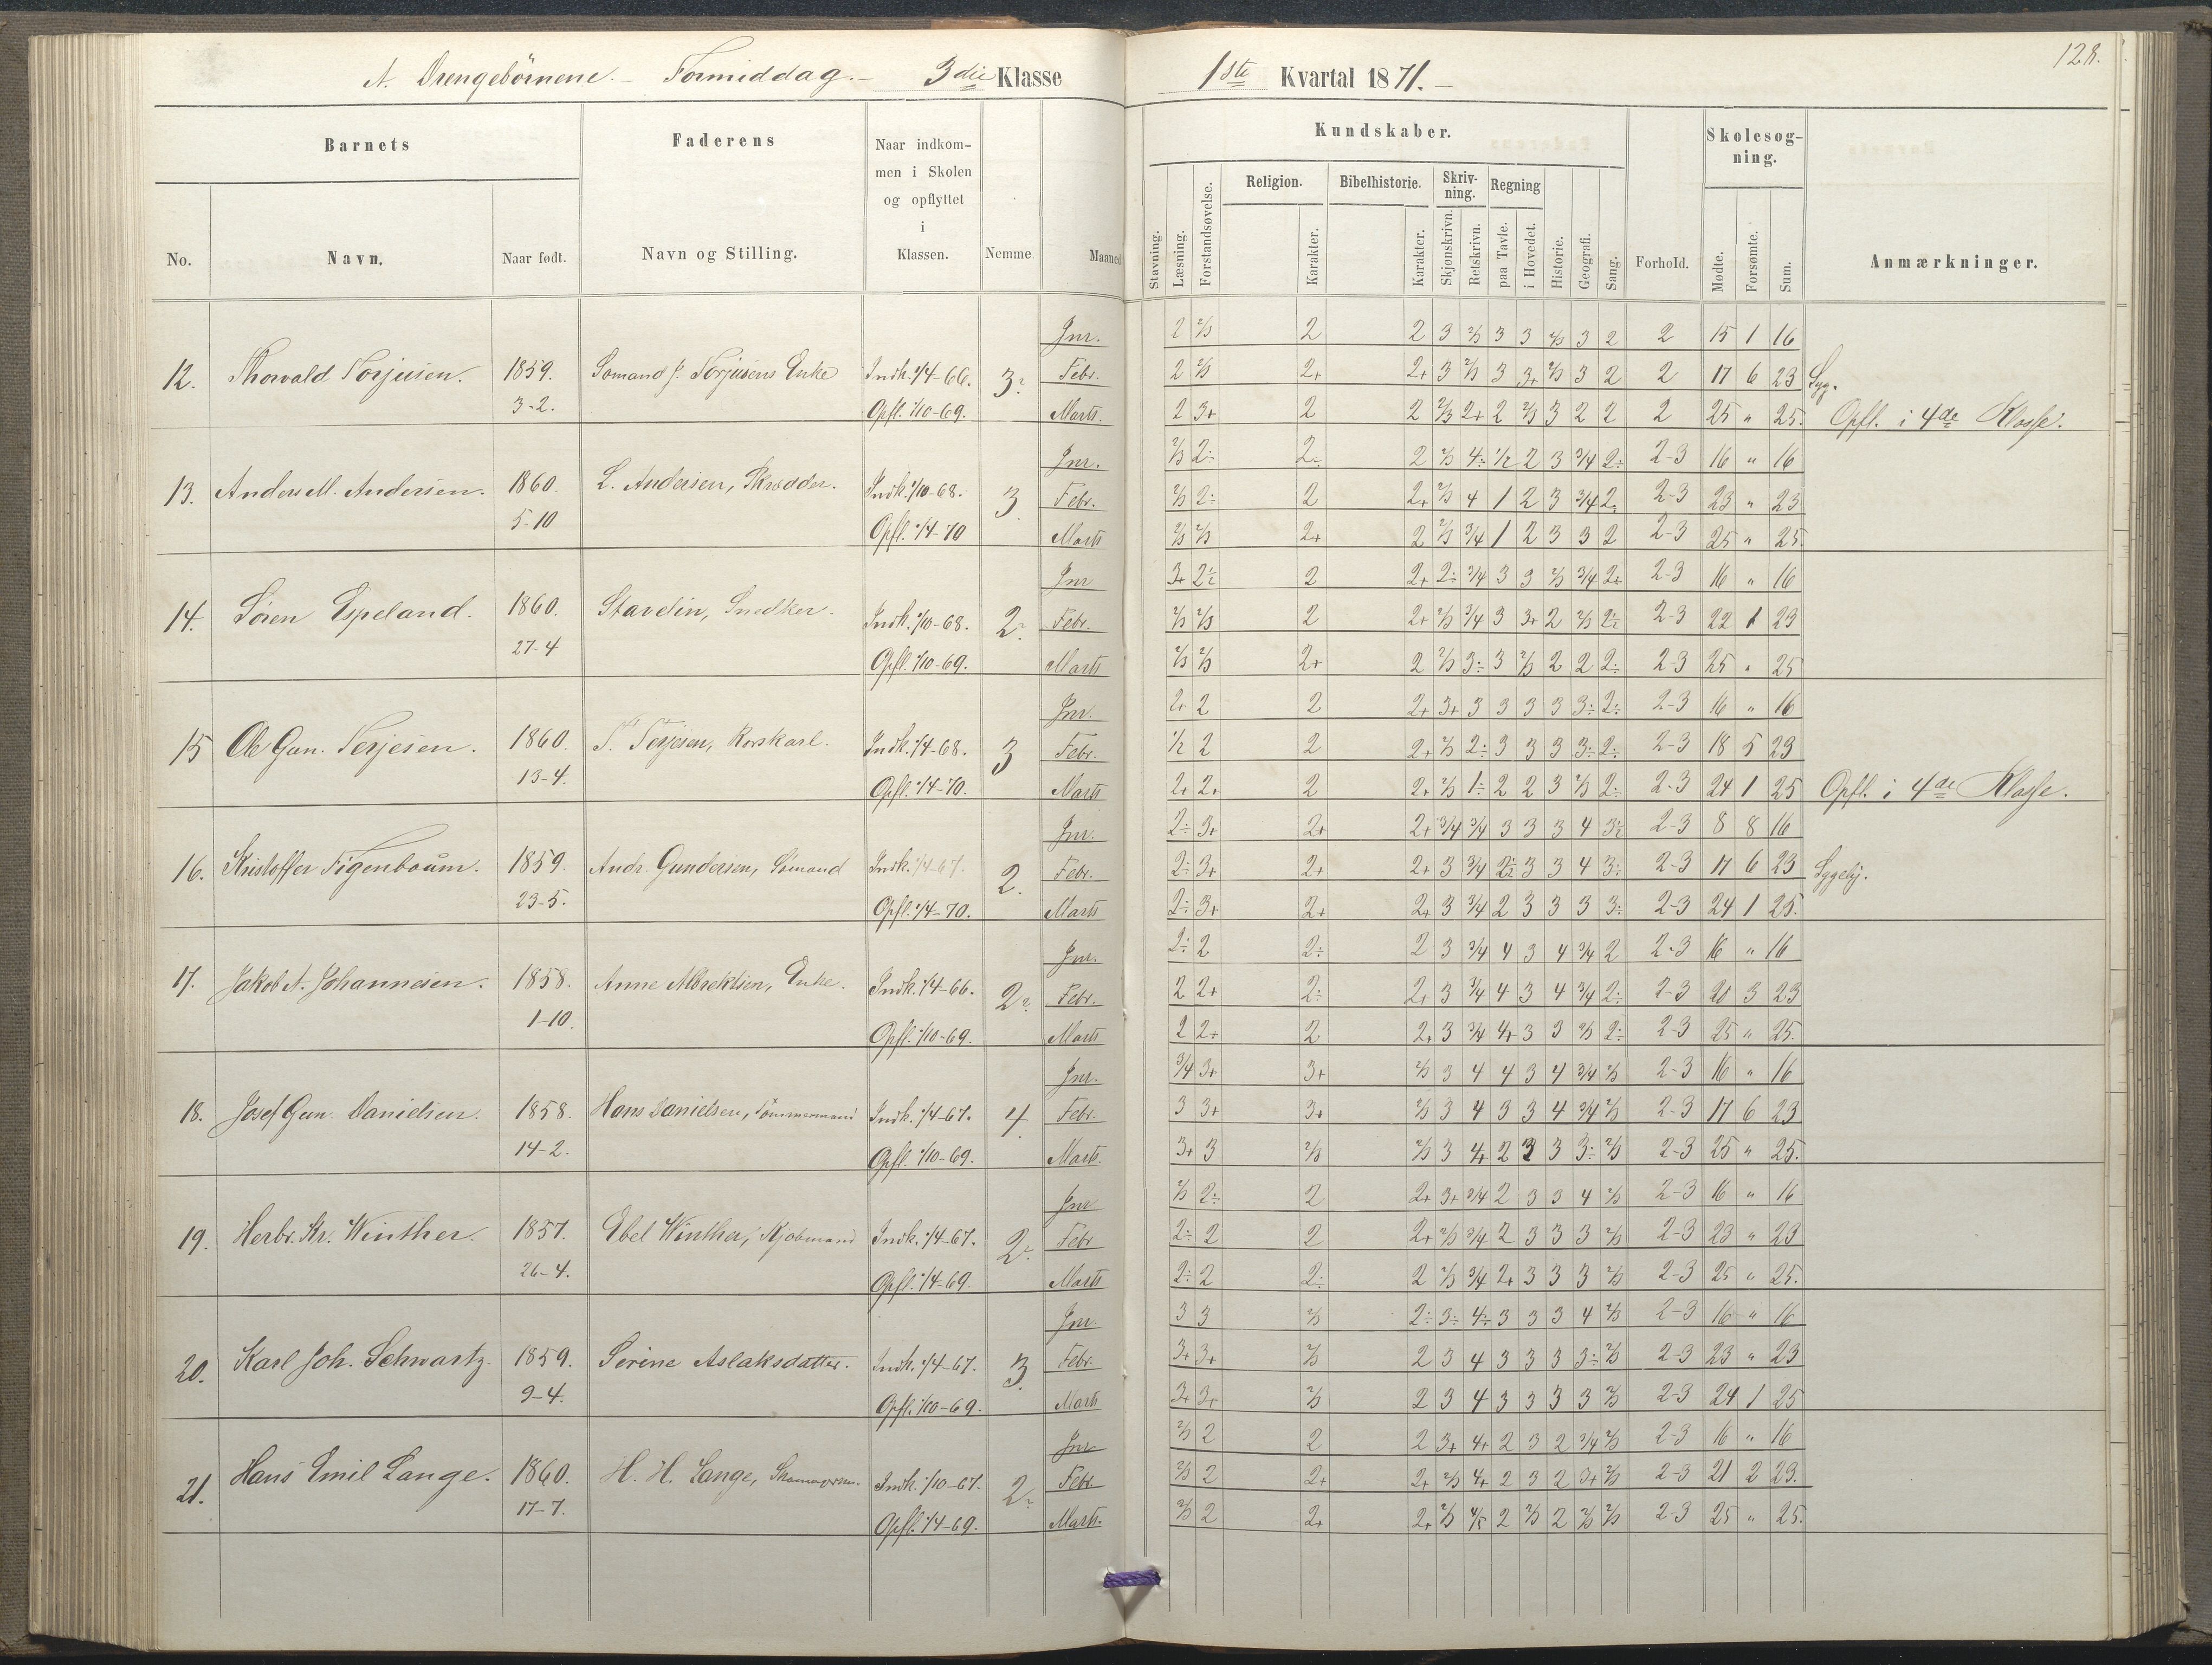 A. Drengebörnene. – Formiddag. – 3die Klasse
1ste Kvartal 1871. –
128.
Barnets
Faderens
Naar indkom-
men i Skolen
og opflyttet
i
Klassen.
No.
Navn.
Naar født.
Navn og Stilling.
Nemme.
Maaned
Kundskaber.
Stavning.
Læsning.
Forstandsøvelse.
Religion.
Karakter.
Bibelhistorie.
Karakter.
Skriv-
ning.
Skjønskrivn.
Retskrivn.
Regning
paa Tavle.
i Hovedet.
Historie.
Geografi.
Sang.
Forhold.
Skolesøg-
ning.
Mødte.
Forsømte.
Sum.
Anmærkninger.
Jnr. 2 2/3 2 2 3 2/3 3 3 2/3 3 2 2 15 1 16
12. Thorvald Torjusen. 1859. Sømand J. Torjusens Enke Indk. 1/4-66. 3. Febr. 2 2/3 2+ 2+ 3 2/3 3 3+ 2/3 3 2 2 17 6 23 Syg.
3-2. Opfl. 1/10-69. Marts. 2 3+ 2 2 2/3 2+ 2 2/3 3 2 2 2 25 " 25. Opfl. i 4de Klasse.
Jnr. 2/3 2÷ 2÷ 2 2/3 4÷ 1/2 2 3 3/4 2÷ 2-3 16 " 16
13. Anders M. Andersen. 1860. L. Andersen, Skrædder. Indk. 1/10-68. 3 Febr. 2/3 2÷ 2 2+ 2/3 4 1 2 3 3/4 2÷ 2-3 23 " 23
5-10 Opfl. 1/4-70 Marts 2/3 2/3 2+ 2 2/3 3/4 1 2 3 3 2 2-3 25 " 25.
Jnr 3+ 2÷ 2 2+ 2÷ 3/4 3 3 2/3 3/4 2+ 2-3 16 " 16
14. Sören Espeland. 1860. Stavelin, Snedker. Indk. 1/10-68. 2. Febr. 2/3 2/3 2 2+ 2/3 3/4 3 3+ 2 2/3 2÷ 2-3 22 1 23
27-4 Opfl. 1/10-69. Marts 2/3 2/3 2+ 2 2/3 3÷ 3 2/3 2 2 2÷ 2-3 25 " 25
Jnr. 2+ 2 2 2+ 3+ 3 3 3 3 3÷ 2÷ 2-3 16 " 16
15 Ole Gun. Terjesen. 1860. T. Terjesen, Rorskarl. Indk. 1/4-68. 3 Febr. 1/2 2 2 2+ 2/3 2÷ 3 3 3 3÷ 2÷ 2-3 18 5 23
13-4. Opfl. 1/4-70. Marts 2+ 2+ 2 2+ 2/3 1÷ 2 2 3 2/3 2÷ 2-3 24 1 25 Opfl. i 4de Klasse.
Jnr. 2÷ 3+ 2+ 2+ 3/4 3/4 3 3 3 4 3÷ 2-3 8 8 16
16. Kristoffer Figenboum. 1859. Andr. Gundersen, Sömand Indk. 1/4-67. 2. Febr. 2÷ 3+ 2+ 2+ 3 3/4 2÷ 3 3 4 3÷ 2-3 17 6 23 Sygelig.
23-5. Opfl. 1/4-70. Marts 2÷ 3+ 2+ 2+ 3 3/4 2 3 3 3 3÷ 2-3 24 1 25.
Jnr. 2÷ 2 2÷ 2 3 3/4 4 3 4 3/4 2 2-3 16 " 16
17. Jakob A. Johannesen. 1858. Anne Albrektsen, Enke. Indk. 1/4-66. 2. Febr. 2 2+ 2÷ 2+ 3 3/4 4 3 4 3/4 2÷ 2-3 20 3 23
1-10. Opfl. 1/10-69. Marts 2 2+ 2 2+ 3 3/4 4+ 3 3 2/3 2÷ 2-3 25 " 25.
Jnr. 3/4 3+ 3+ 2/3 3 4 4 3 4 3/4 2/3 2-3 16 " 16
18. Josef Gun. Danielsen. 1858. Hans Danielsen, Tömmermand Indk. 1/4-67. 4. Febr. 3 3+ 3+ 2/3 3 4 3 3 4 3/4 2/3 2-3 17 6 23
14-2. Opfl. 1/10-69. Marts. 3+ 3 2/3 2/3 3 4+ 2 3 3 3÷ 2/3 2-3 25 " 25.
Jnr 2/3 2÷ 2 2+ 3+ 3/4 2 3 3 4 2/3 2-3 16 " 16
19. Herbr. Kr. Winther. 1857. Ebel Winther, Kjöbmand Indk. 1/4-67. 2. Febr 2÷ 2 2 2+ 2/3 3/4 2 3 3 3 2/3 2-3 23 " 23
26-4. Opfl. 1/4-69 Marts 2÷ 2 2÷ 2 2/3 3/4 2+ 3 3 3 2/3 2-3 25 " 25.
Jnr. 3 3 2/3 2÷ 3÷ 4÷ 3 3 3 4 2/3 2-3 16 " 16
20. Karl Joh. Schwartz. 1859. Serine Aslaksdatter. Indk. 1/4-67. 3. Febr. 3+ 3+ 2/3 2 3 4 3 3 3 3÷ 2/3 2-3 23 " 23
9-4. Opfl. 1/10-69. Marts 3+ 3+ 2/3 2 3 4 3 3 3 3 2/3 2-3 24 1 25
Jnr 2/3 2 2 2 3+ 4+ 2 3 2 3/4 2/3 2-3 16 " 16
21. Hans Emil Lange. 1860. H. H. Lange, Indk. 1/10-67. 2. Febr 2/3 2 2+ 2+ 2/3 4+ 2 3 2 3+ 2/3 2-3 21 2 23.
17-7. Opfl. 1/4-69. Marts. 2/3 2 2+ 2+ 2/3 4/5 2 2/3 2 2/3 2/3 2-3 25 " 25.